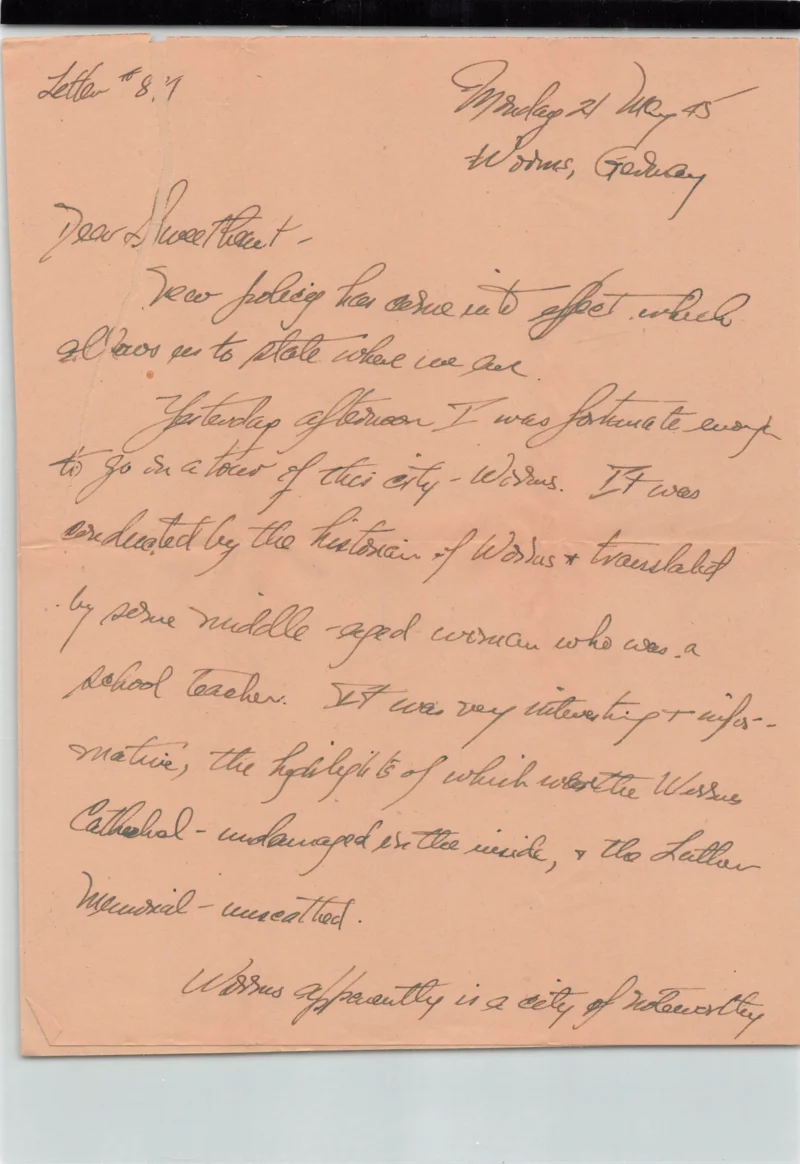 Letter # 87
Monday 21 May 45
Worms, Germany
Dear Sweetheart -
New policy has come into effect which
allows us to state where we are.
Yesterday afternoon I was fortunate enough
to go on a tour of this city - Worms. It was
conducted by the historian of Worms + translated
by some middle-aged woman who was a
school teacher. It was very interesting + infor-
mative, the highlights of which were the Worms
Cathedral - undamaged on the inside, + the Luther
Memorial - unscathed.
Worms apparently is a city of noteworthy